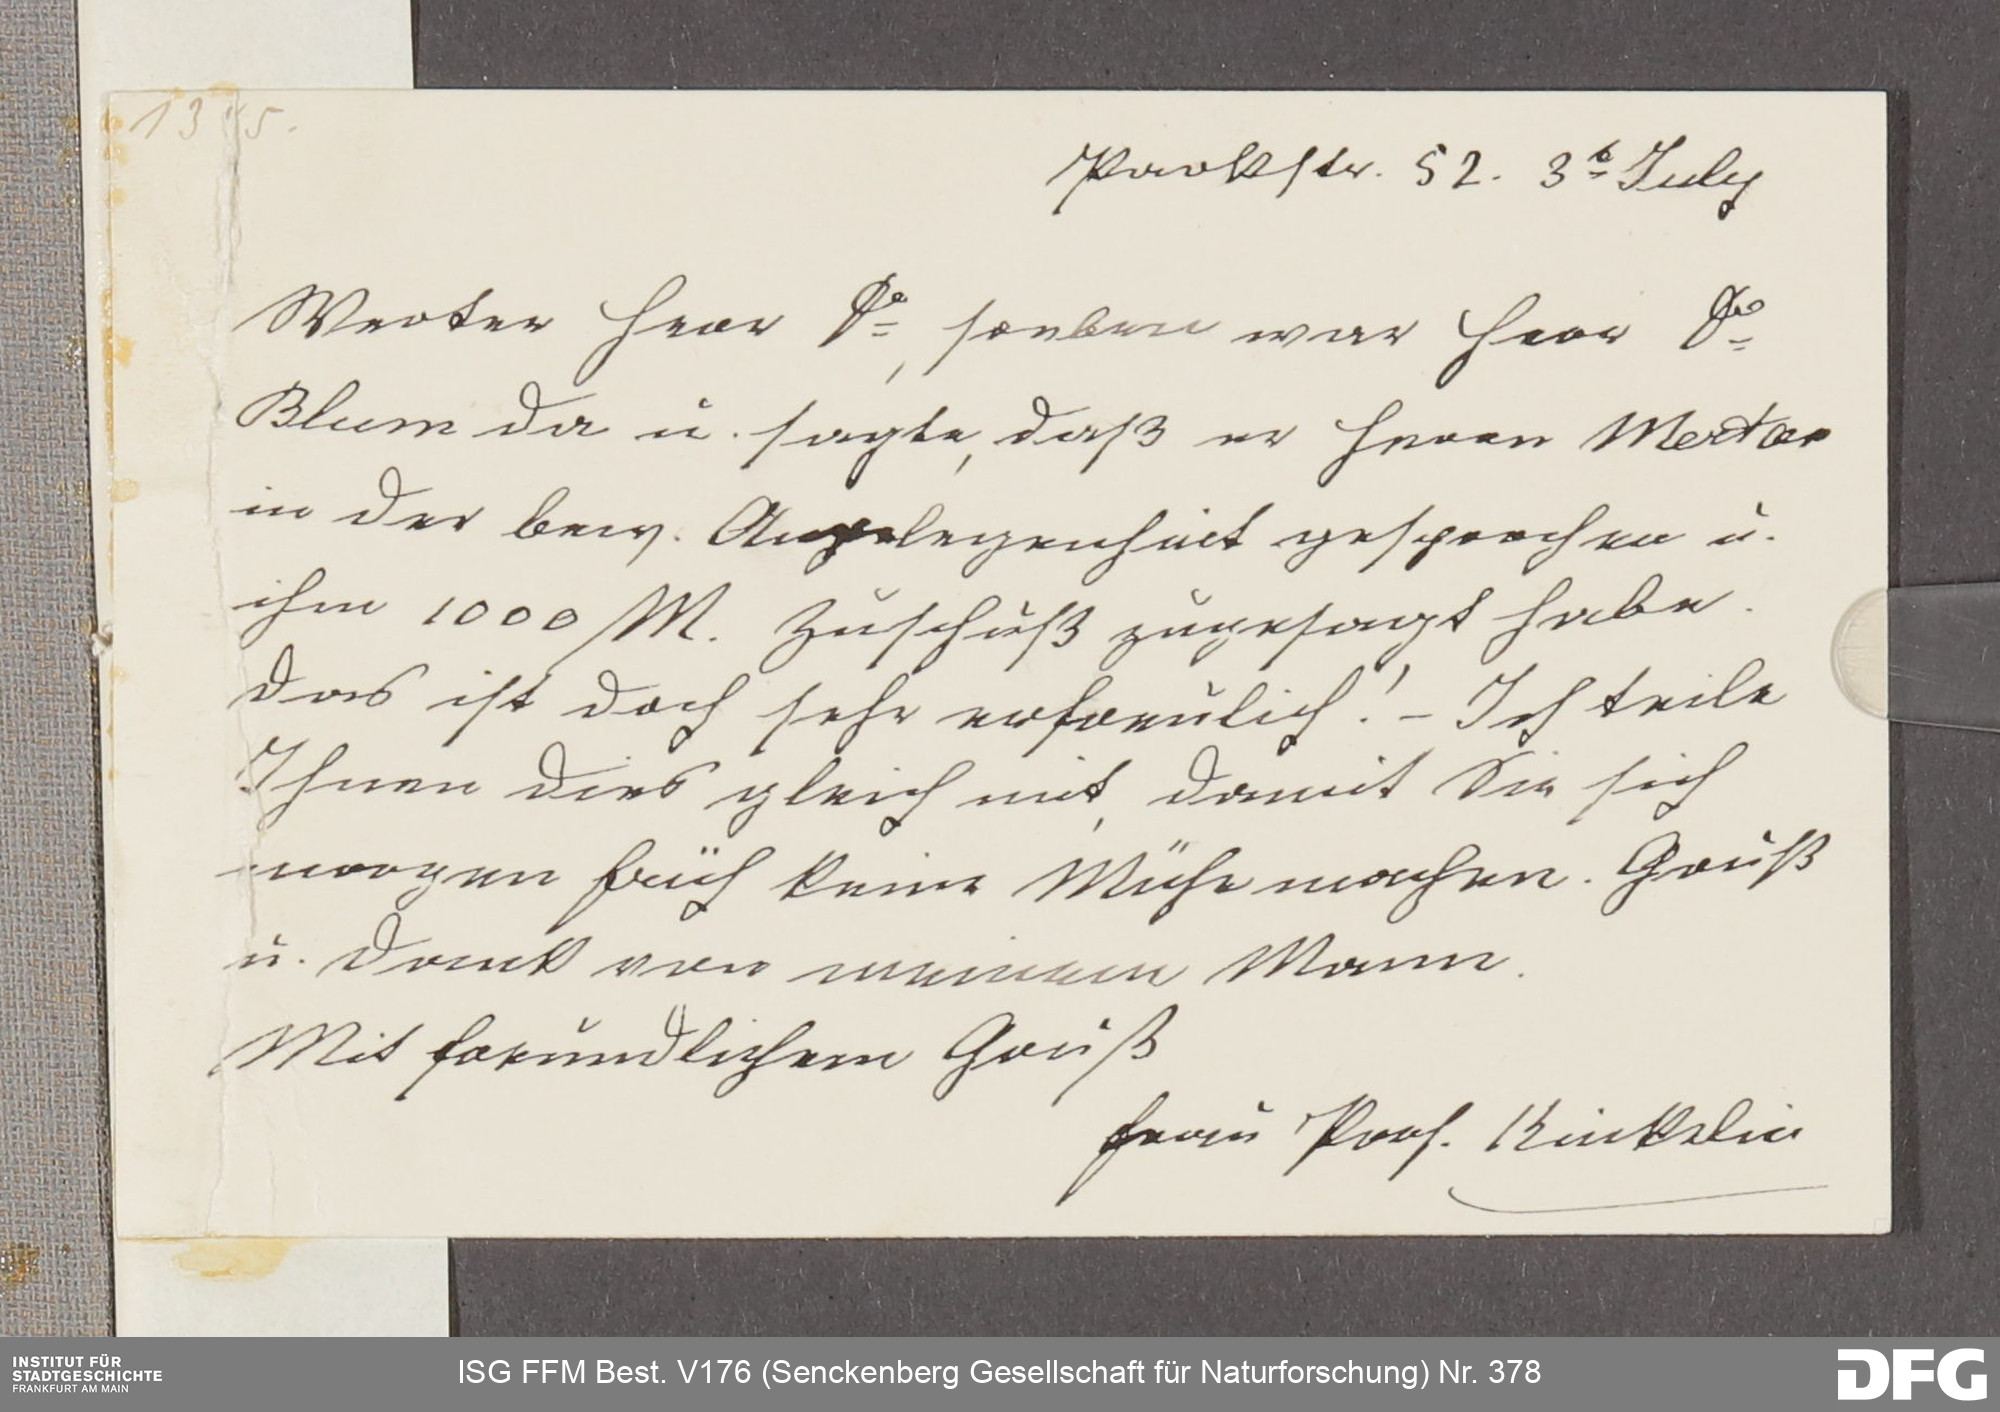 Parkstr. 52. 3t July
Werter Herr Dr, soeben war Herr Dr
Blum da u. sagte, daß er Herrn Merton
in der bew. Angelegenheit gesprochen u.
ihm 1000 M. Zuschuß zugesagt habe.
Das ist doch sehr erfreulich! – Ich teile
Ihnen dies gleich mit, damit Sie sich
morgen früh keine Mühe machen. Gruß
u. Dank von meinem Mann.
Mit freundlichem Gruß
Frau Prof. Kinkelin
INSTITUT FÜR
STADTGESCHICHTE
FRANKFURT AM MAIN
ISG FFM Best. V176 (Senckenberg Gesellschaft für Naturforschung) Nr. 378
DFG